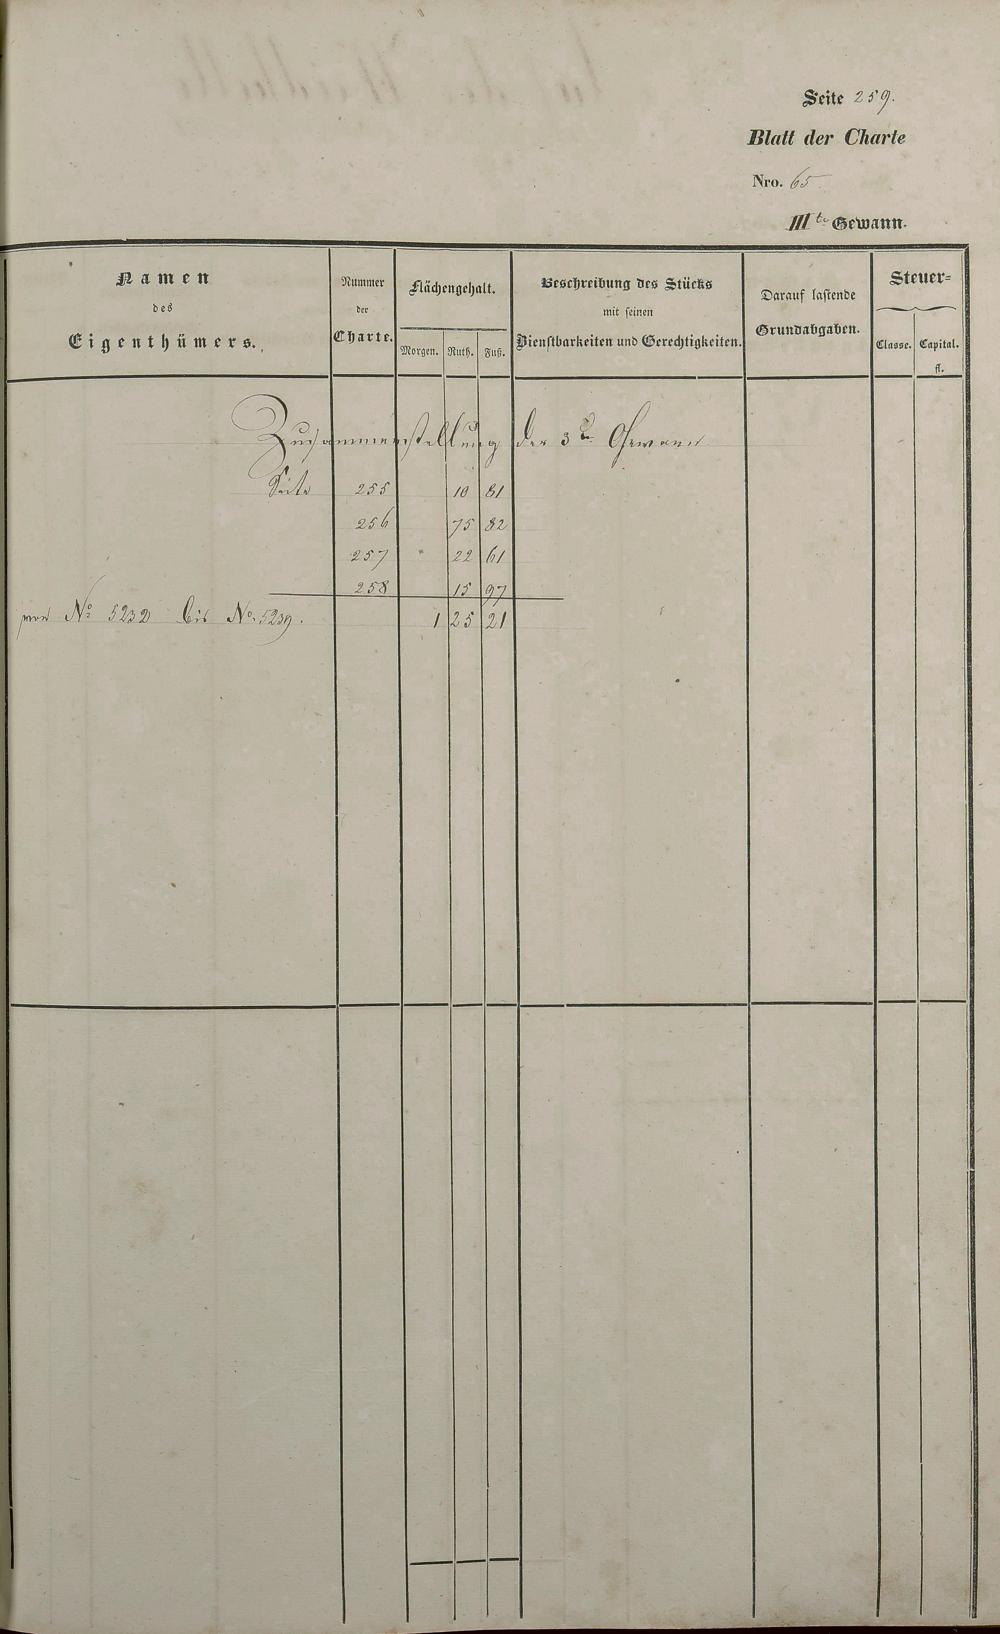 Seite 259.
Blatt der Charte
Nro. 65
IIIte Gewann.
Namen
des
Eigenthümers.
Nummer
der
Charte.
Flächengehalt.
Morgen. Ruth. Fuß.
Beschreibung des Stücks
mit seinen
Dienstbarkeiten und Gerechtigkeiten.
Darauf lastende
Grundabgaben.
Steuer=
Classe. Capital.
fl.
Zusammenstellung der 3te Gewann
Seite 255 10 81
256 75 82
257 22 61
258 15 97
von No 5232 bis No. 5239. 1 25 21